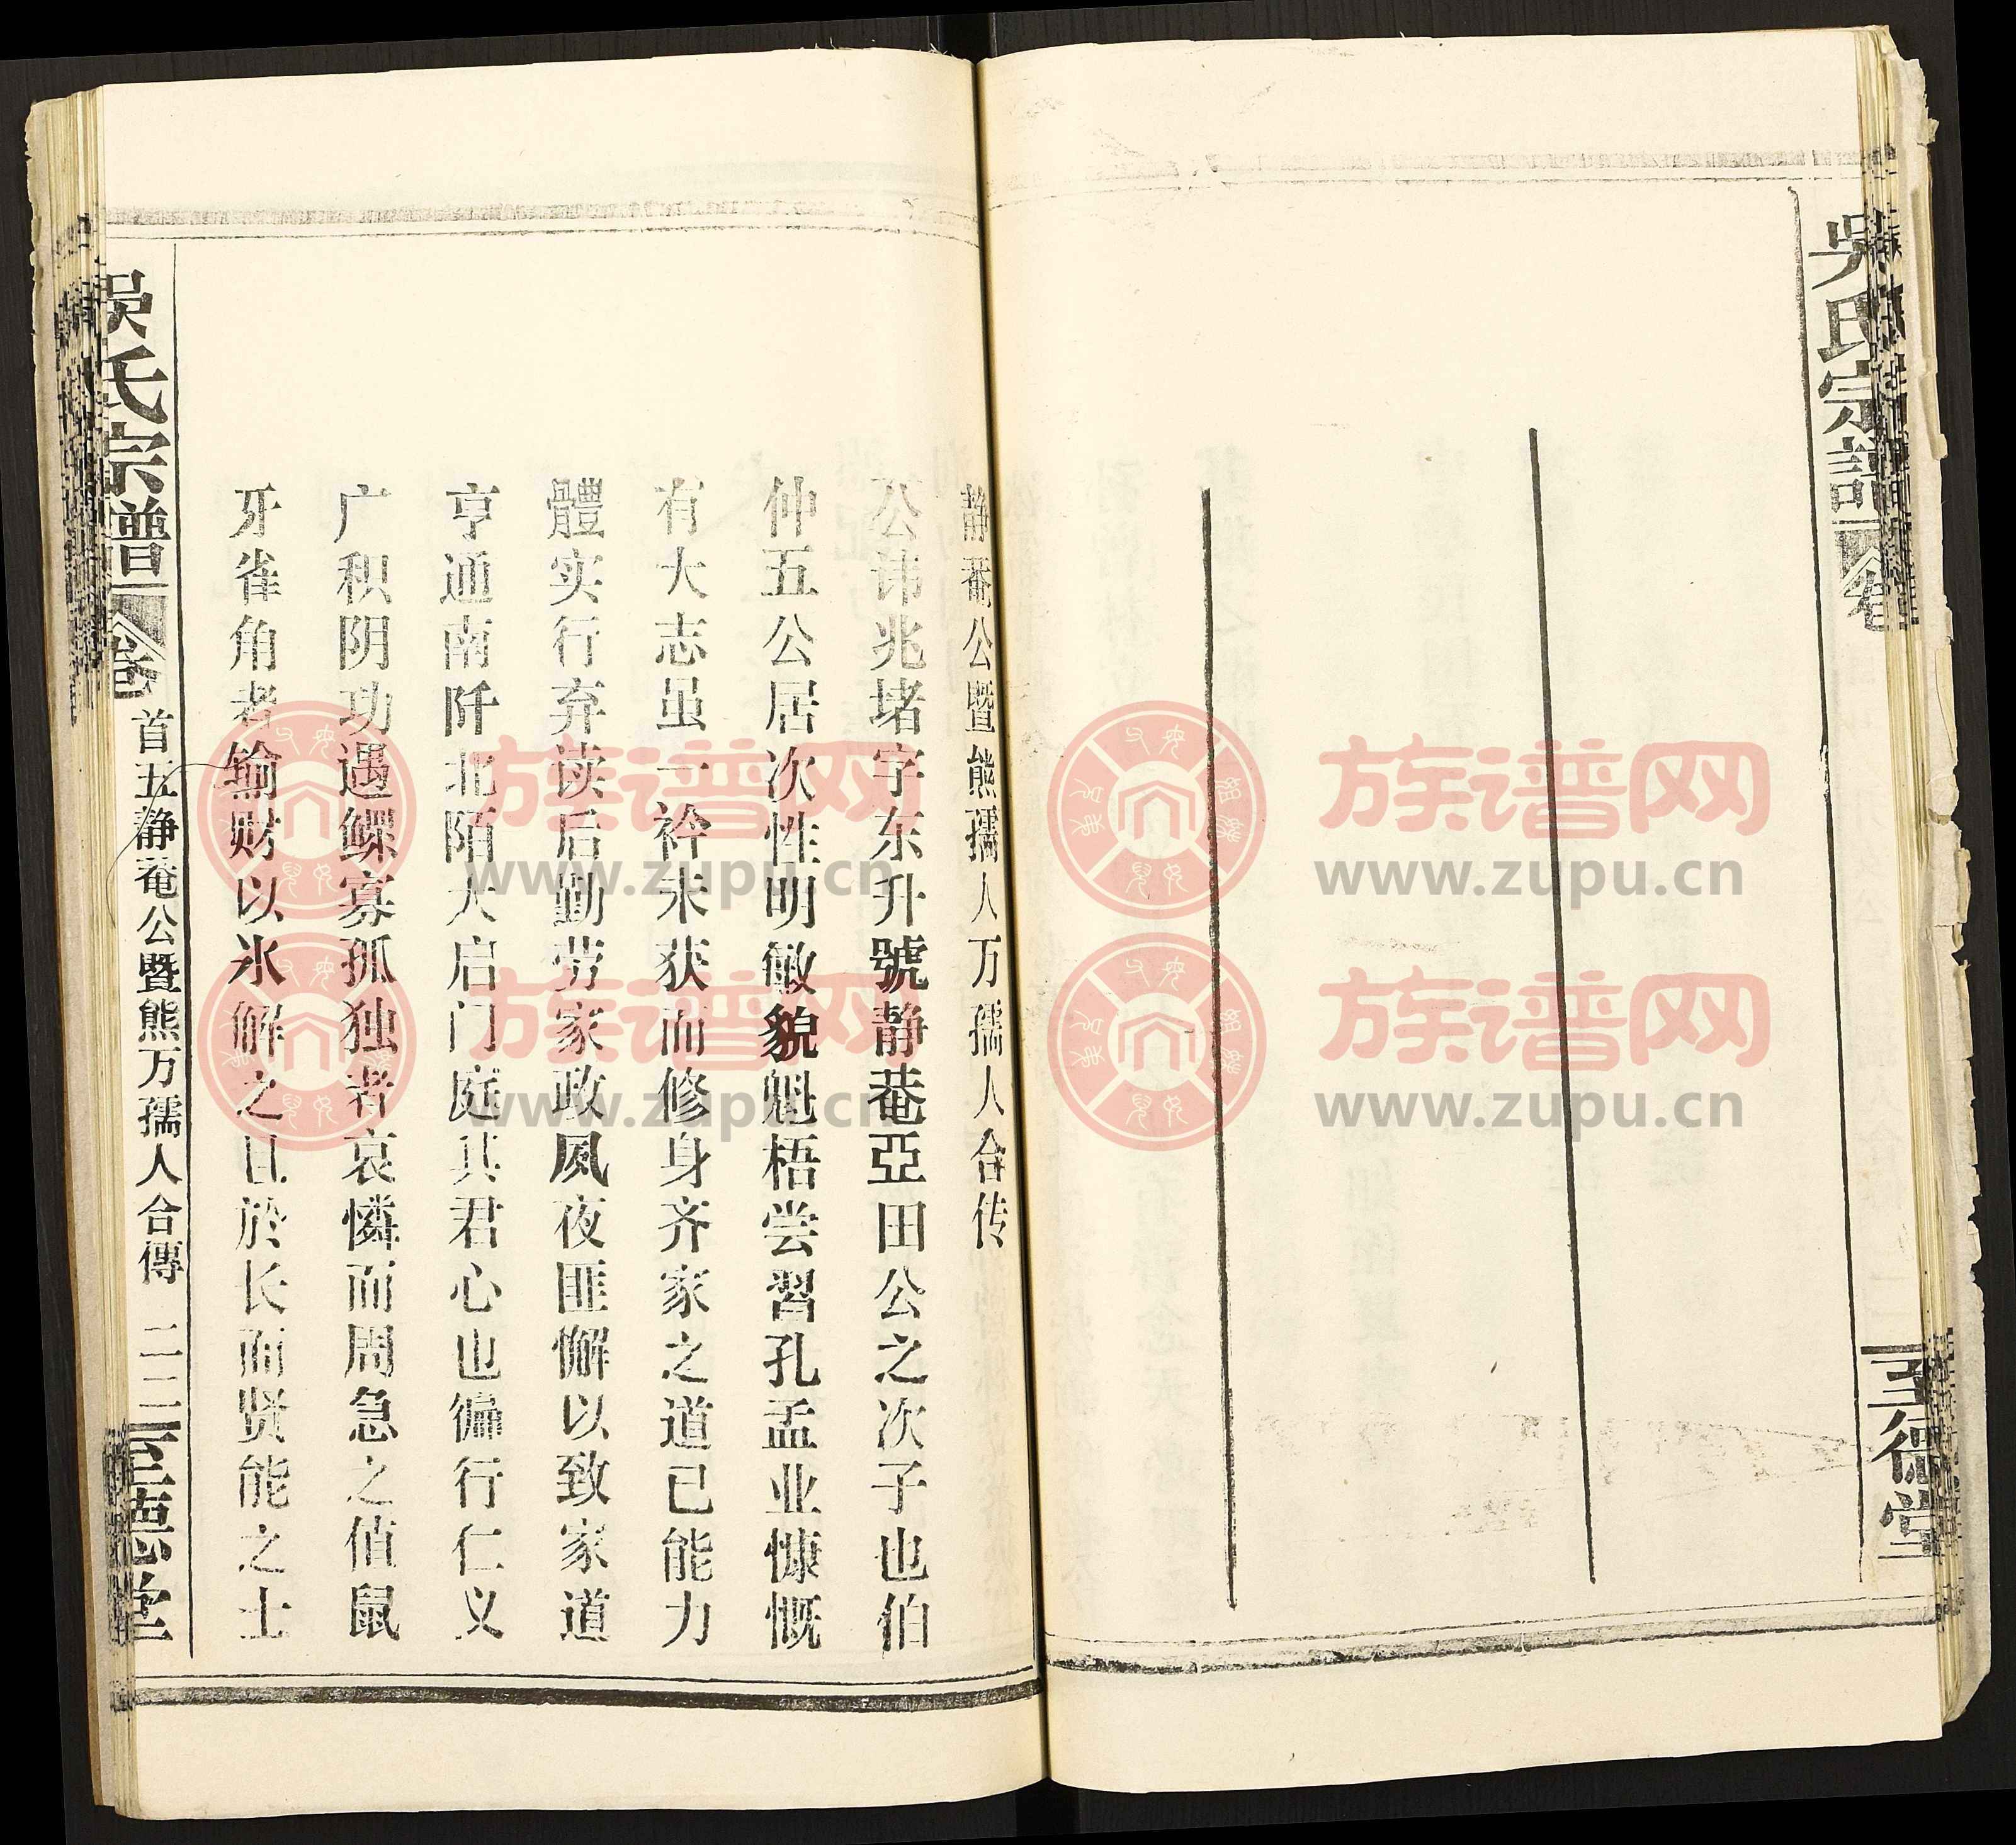 吳氏宗譜
卷
至德堂
静菴公暨熊孺人万孺人合传
公讳兆堵字东升號静菴亞田公之次子也伯
仲五公居次性明敏貌魁梧尝習孔孟业慷慨
有大志虽一衿未获而修身齐家之道已能力
體实行弃读后勤劳家政夙夜匪懈以致家道
亨通南阡北陌大启门庭其君心也徧行仁义
广积阴功遇鳏寡孤独者哀憐而周急之值鼠
牙雀角者输财以氷解之且於长而贤能之士
吴氏宗譜
卷
首五静菴公暨熊万孺人合傳
二二
至德堂
族谱网
www.zupu.cn
族谱网
www.zupu.cn
族谱网
www.zupu.cn
族谱网
www.zupu.cn